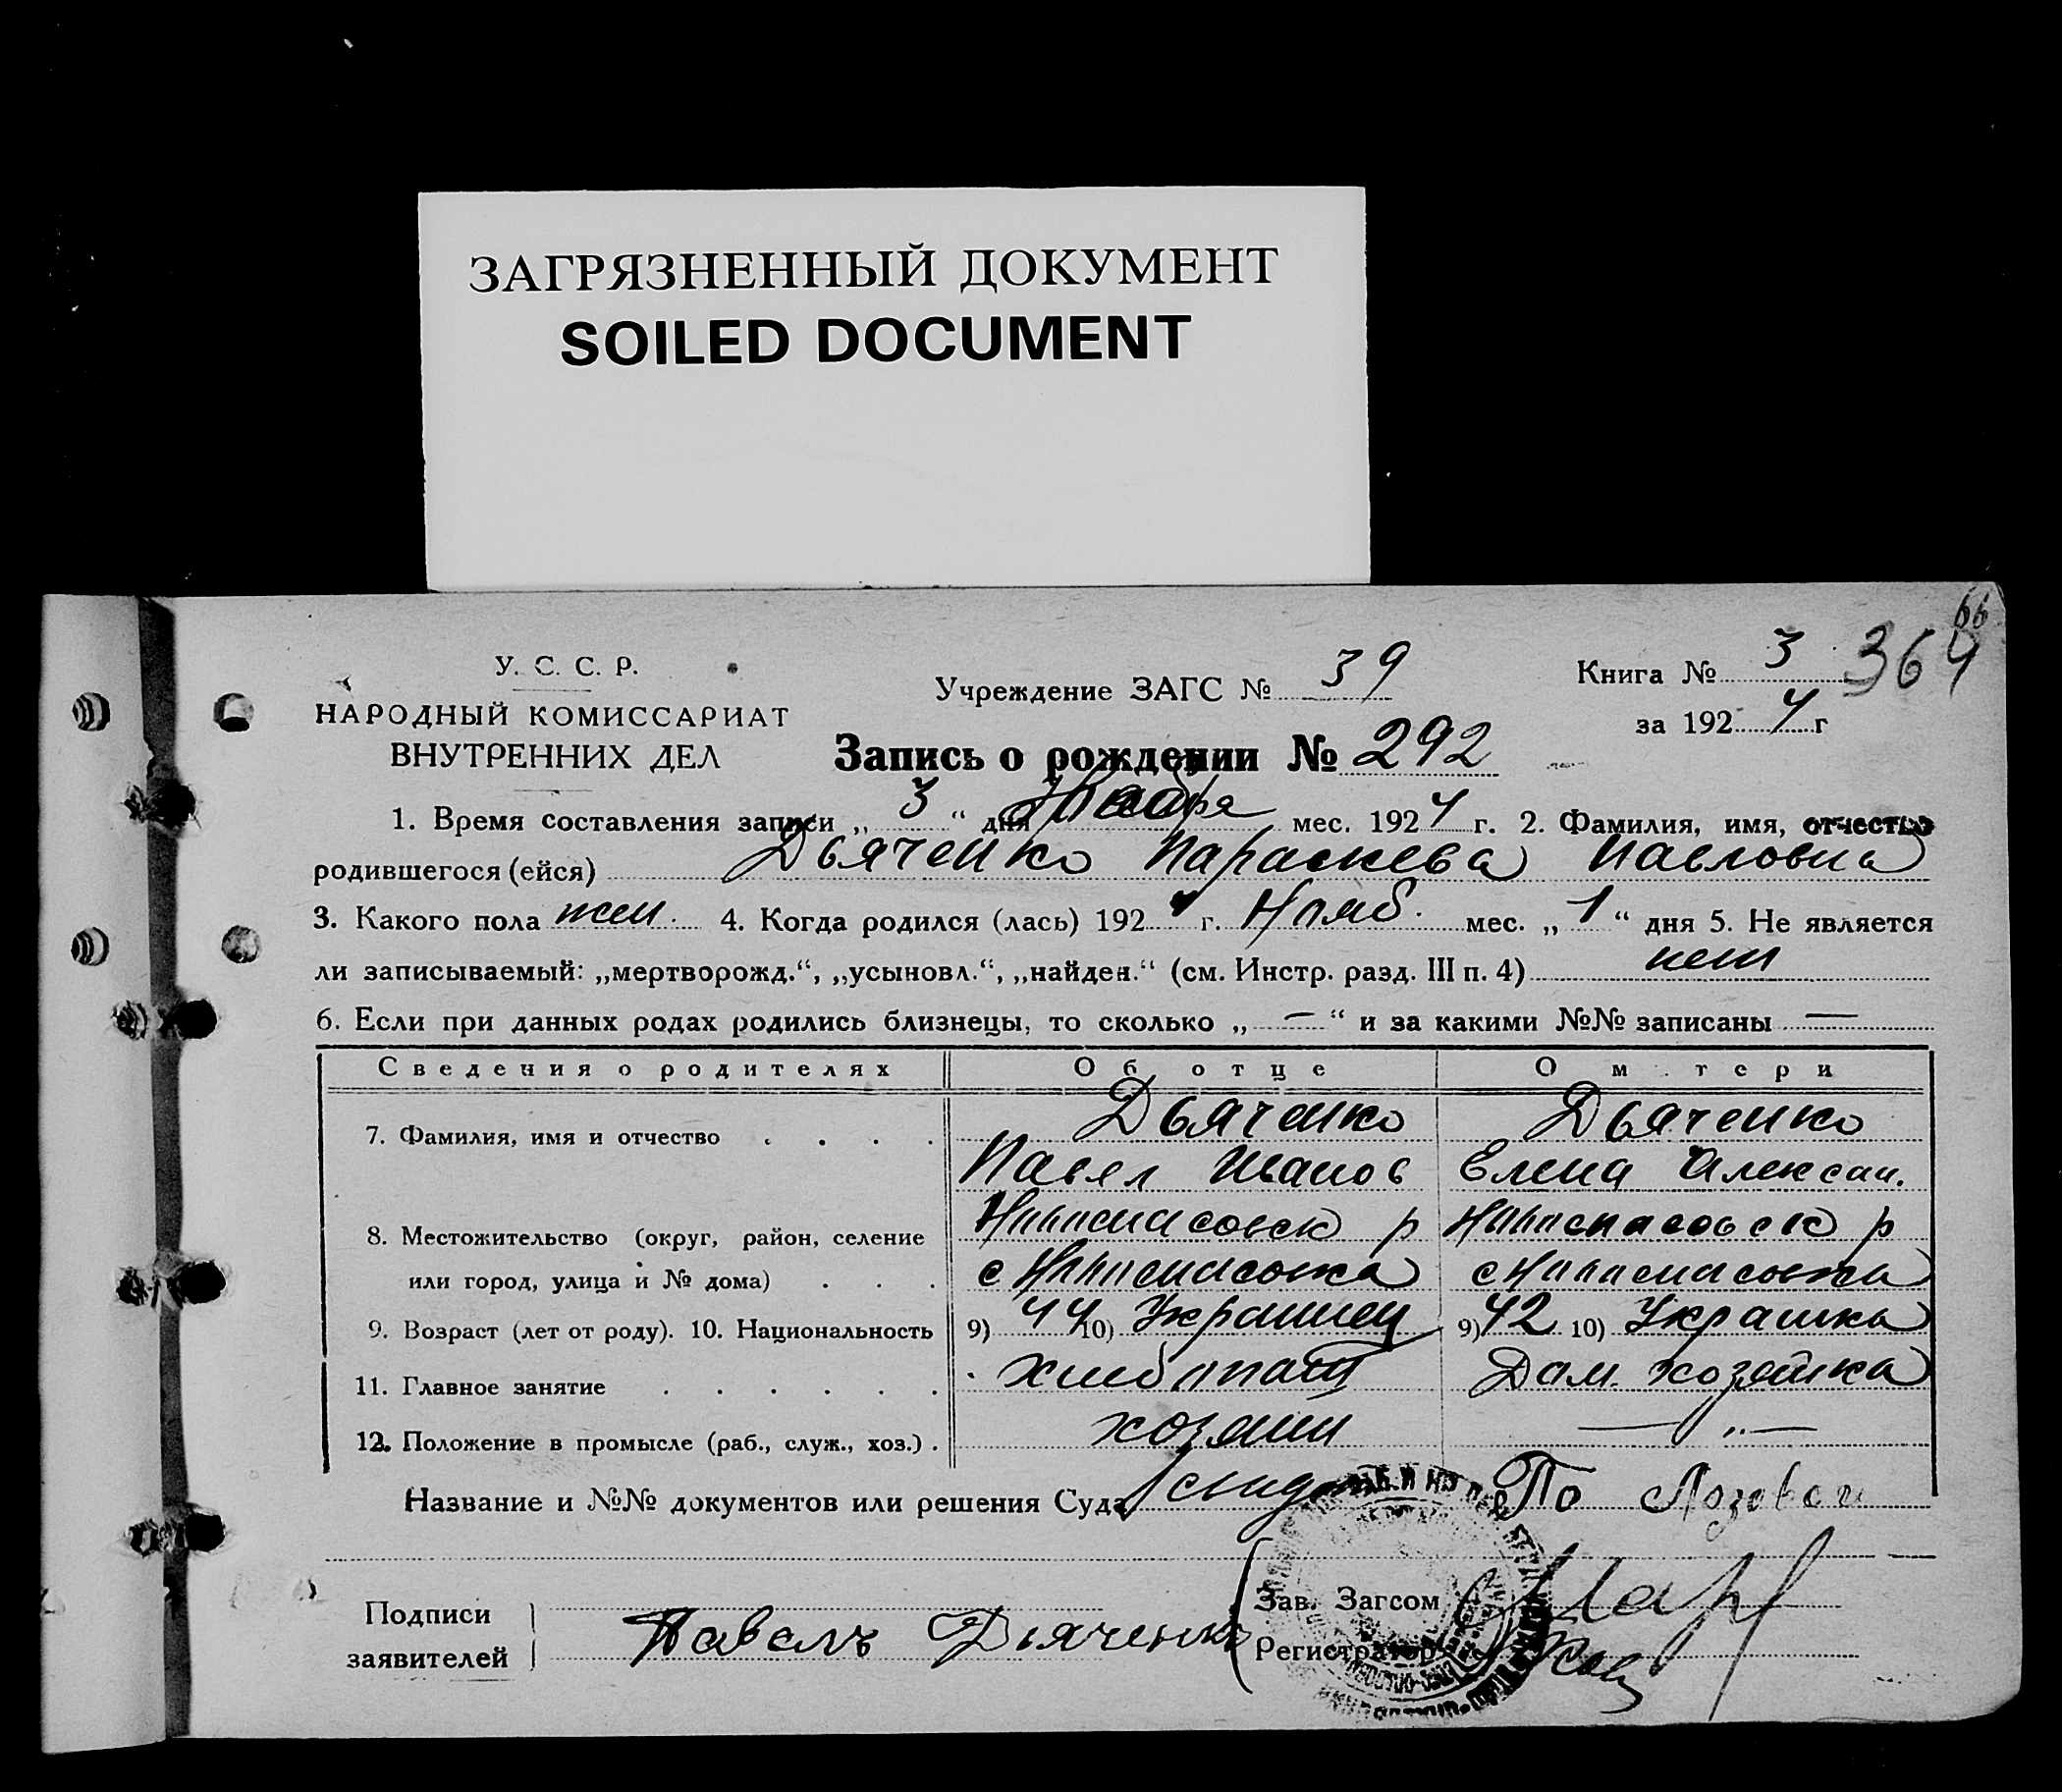 ЗАГРЯЗНЕННЫЙ ДОКУМЕНТ
SOILED DOCUMENT
66
У. С. С. Р.
Учреждение ЗАГС № 39
Книга № 3 364
НАРОДНЫЙ КОМИССАРИАТ
за 1924 г
ВНУТРЕННИХ ДЕЛ
Запись о рождении № 292
1. Время составления записи „ 3 “ дня мес. 1924 г. 2. Фамилия, имя, отчество
родившегося (ейся) Дьяченко Параскева Павловна
3. Какого пола жен. 4. Когда родился (лась) 1924 г. Нояб. мес. „ 1 “ дня 5. Не является
ли записываемый: „мертворожд.“, „усыновл.“, „найден.“ (см. Инстр. разд. III п. 4) нет
6. Если при данных родах родились близнецы, то сколько „ — “ и за какими №№ записаны —
Сведения о родителях Об отце О м тери
7. Фамилия, имя и отчество . . . . Дьяченко Дьяченко
Павел Иванов Елена Александ.
8. Местожительство (округ, район, селение р р
или город, улица и № дома) . . . с с
9. Возраст (лет от роду). 10. Национальность 9) 44 10) Украинец 9) 42 10) Украинка
11. Главное занятие . . . . . . Хлебопаш Дом. хозяйка
12. Положение в промысле (раб., служ., хоз.) . хозяин — „ —
Название и №№ документов или решения Суда По Лозовой
Подписи
заявителей
Павелъ Дьяченко
Зав. Загсом
Регистратор